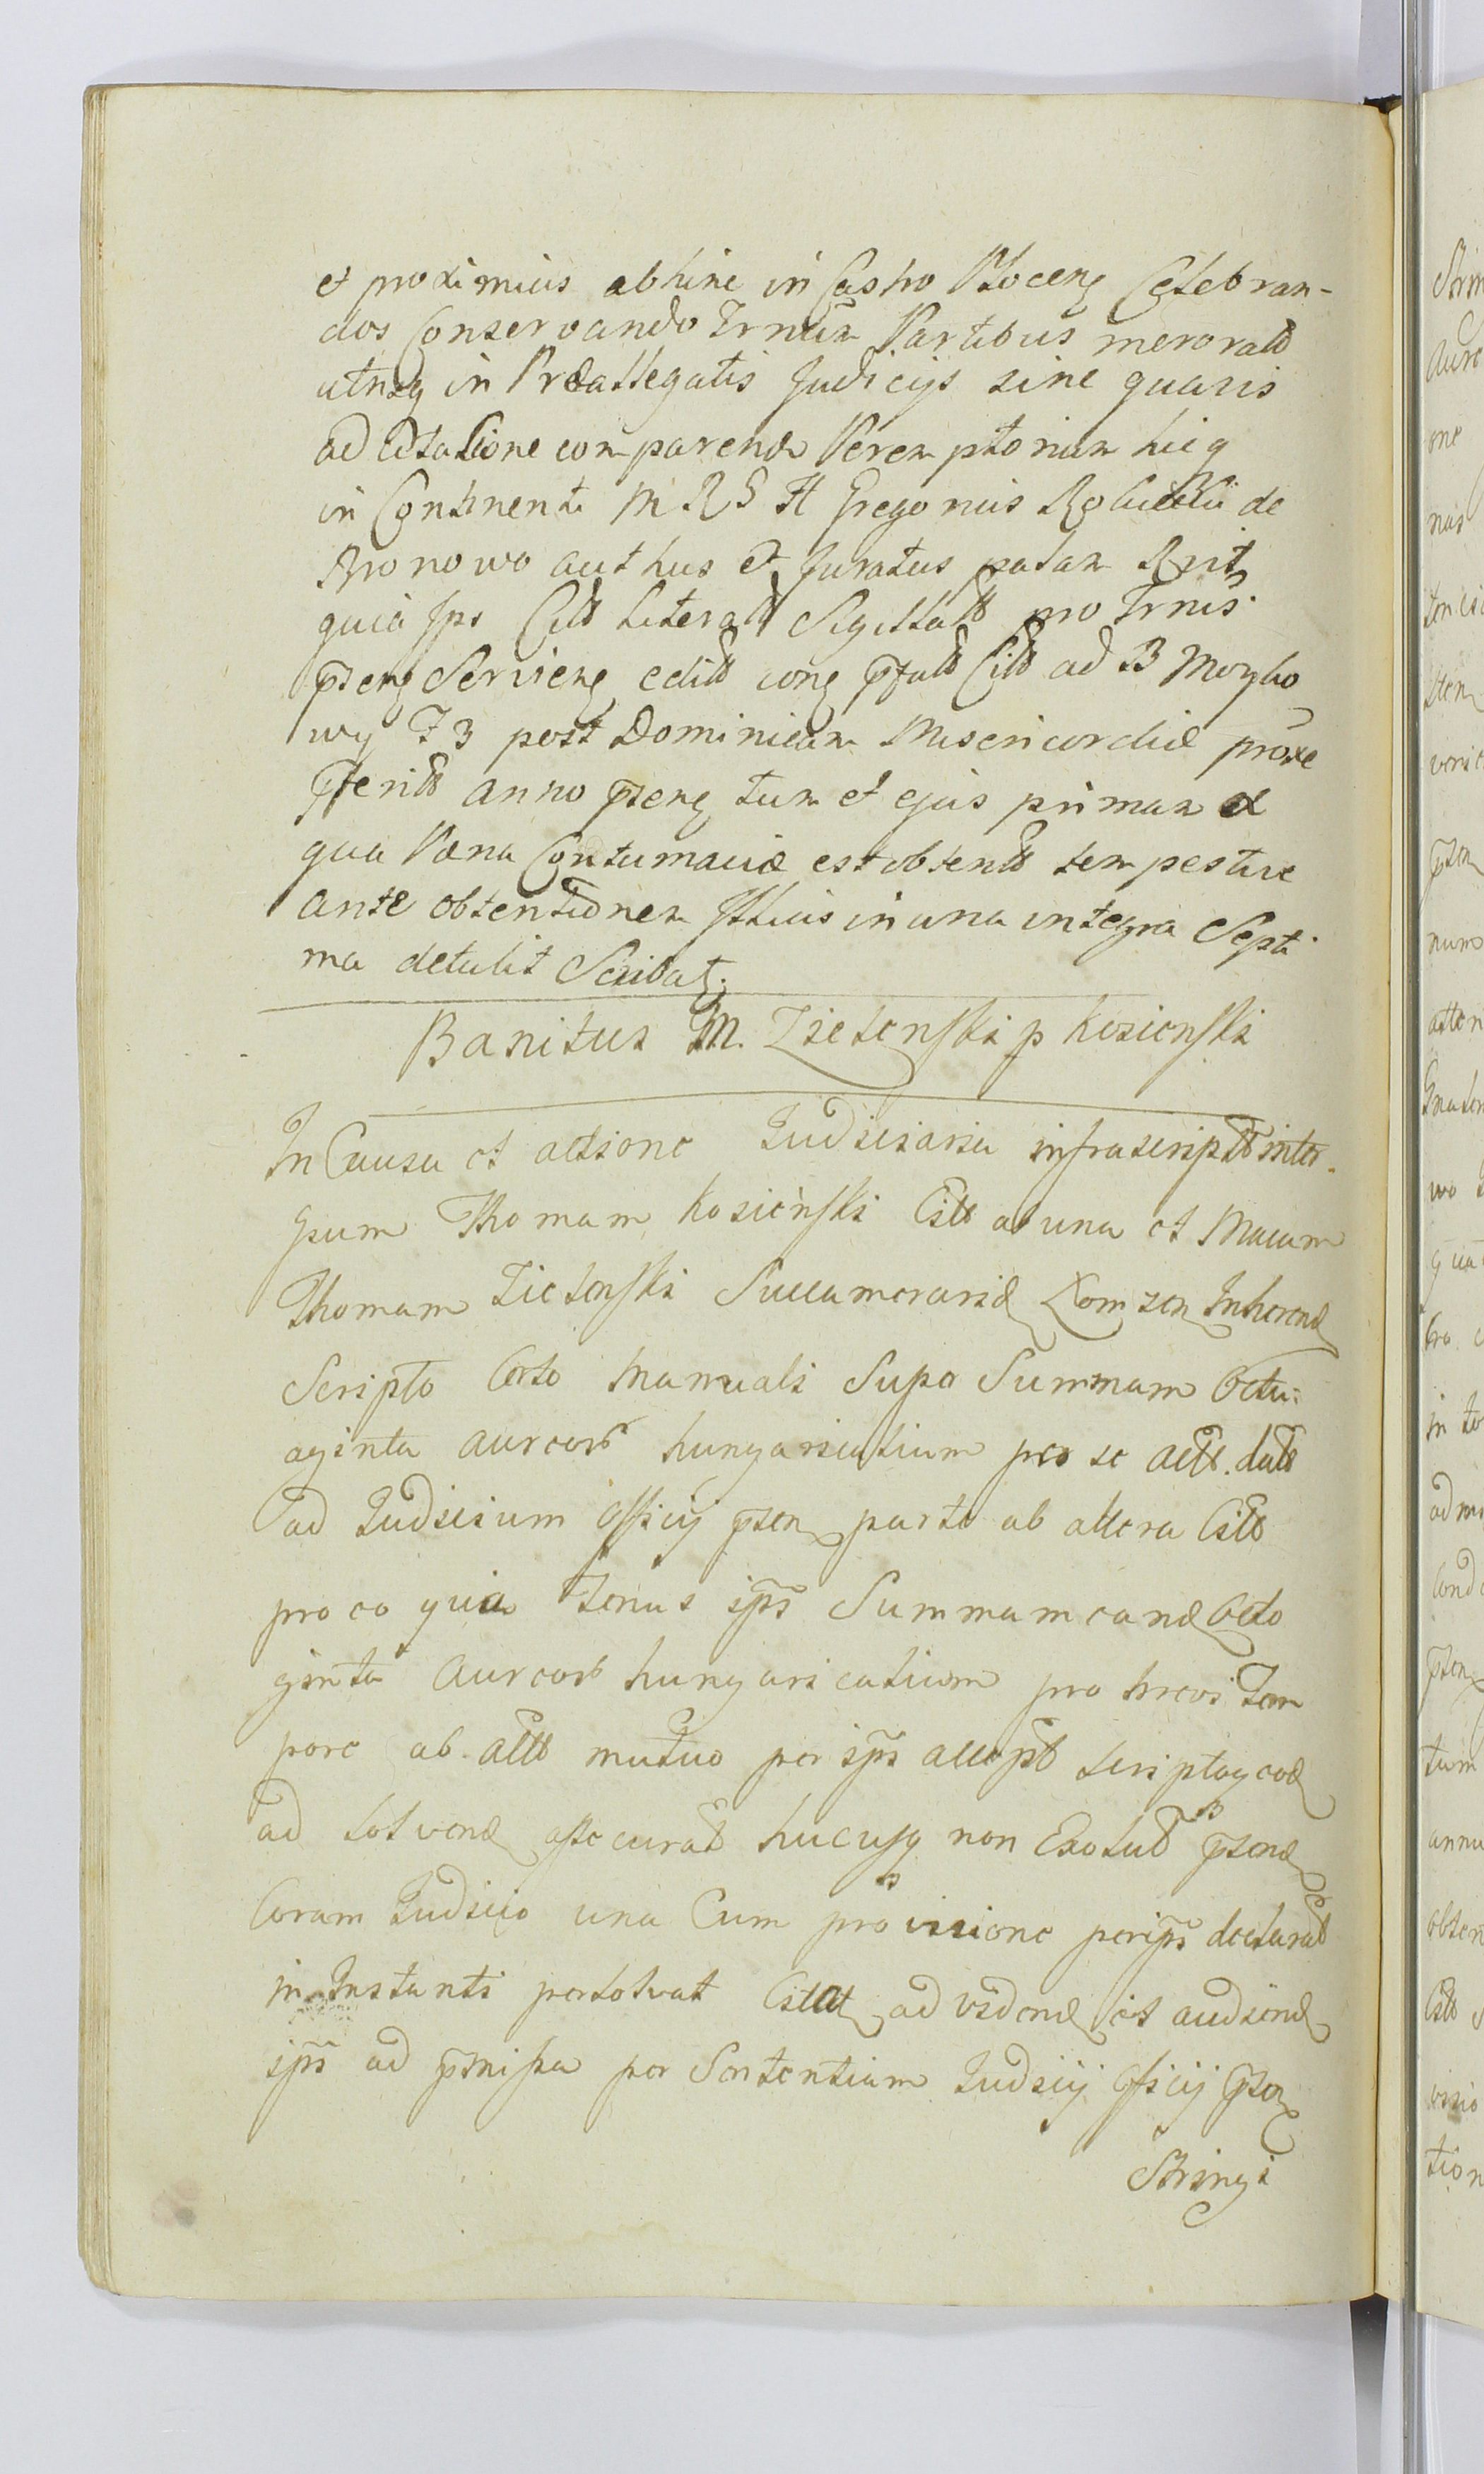 et proximius abhinc in Castro Plocen Celebran-
dos Conservando Trnum Partibus memoratis
utrisq in Praeallegatis Judicijs sine quavis
ad Citatione comparendi Peremptorium hicq
in Continenti M R G H Gregorius de
Bronowo authus et Juratus palam Rcit
quia Ips Citt Literatt Sigillatt pro Trnis
pseng Servieng editt cong pfatt Citt ad B Moycho
wy F 3 post Dominicam Misericordiae proxe
pteritt anno pseng tum et ejus primam ex
qua Paena Contumaciae est obtentt tempestive
ante obtentionem Illius in una integra Septi
ma detulit Scribat.
Banitus M. Zielenski p Kosienski
In Causa et actione Judiciaria infrascriptt inter
Gsum Thomam Kosieński Citt ab una et Mcum
Thomam Zielenski Succamerarid Lomzen Inherend
Scripto Certo Manuali Super Summam Octu:
aginta aureorr hungaricalium per se actt. datt
ad Judicium Officij psen parte ab altera Citt
pro eo quia tenus ips Summam eand Octo
ginta Aureorr hungaricalium pro brevi Tem
pore ab actt mutuo per ips accept scriptoq eod
ad solvend assecurat hucusq non Exolut psend
Coram Judicio una Cum provisione per ips declarat
in Instanti persolvat Citat ad vidend et audiend
ips ad pmissa per Sententiam Judicij Officij psen
Stringi